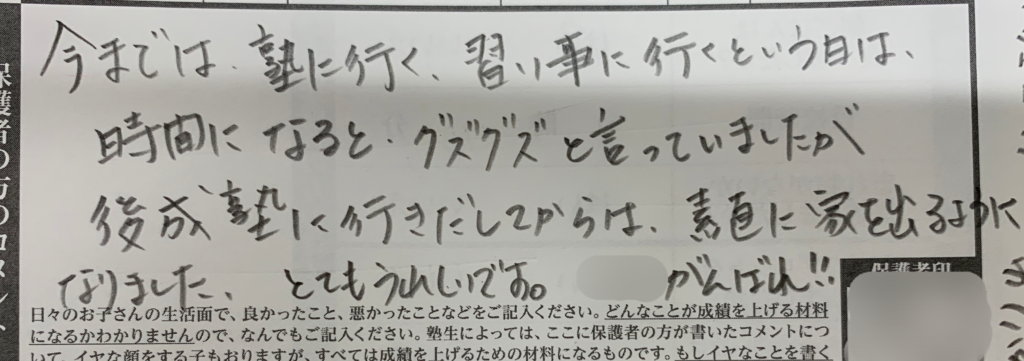 今までは、塾に行く、習い事に行くという日は、
時間になると、グズグズと言っていましたが
後成塾に行きだしてからは、素直に家を出るように
なりました、とてもうれしいです。 がんばれ!!
保護者の方のコメント
保護者印
日々のお子さんの生活面で、良かったこと、悪かったことなどをご記入ください。どんなことが成績を上げる材料
になるかわかりませんので、なんでもご記入ください。塾生によっては、ここに保護者の方が書いたコメントにつ
いて、イヤな顔をする子もおりますが、すべては成績を上げるための材料になるものです。もしイヤなことを書く